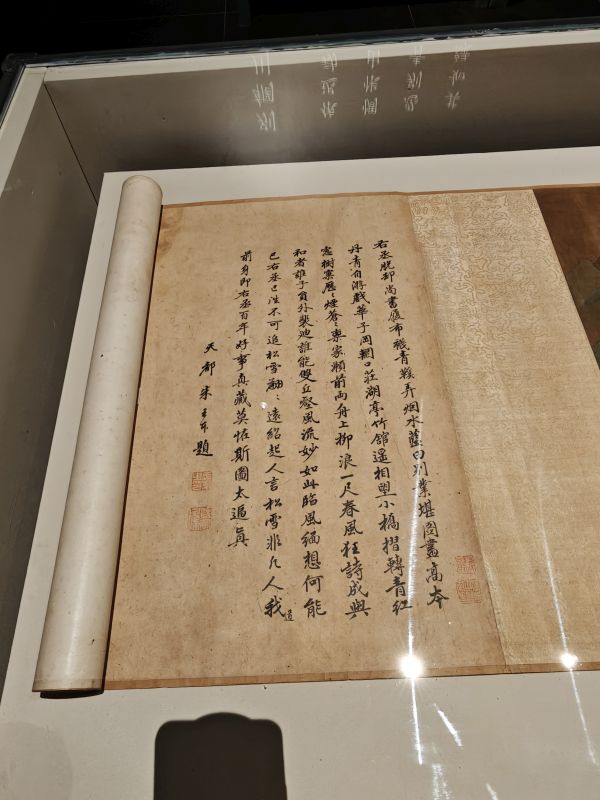 右丞脫却尚書履布襪青鞵弄烟水藍田別業堪圖畫高本
丹青自游戲華子岡輞口莊湖亭竹館遥相望小橋摺轉青紅
窓樹寒歷〻煙蒼〻東家瀕前兩舟上柳浪一尺春風狂詩成與
和者誰子員外裴迪誰能雙丘壑風流妙如此臨風緬想何能
已右丞已往不可追松雪翩〻遠紹起人言松雪非凡人我道
前身即右丞百年好事真藏莫恠斯圖太逼真
天都朱題